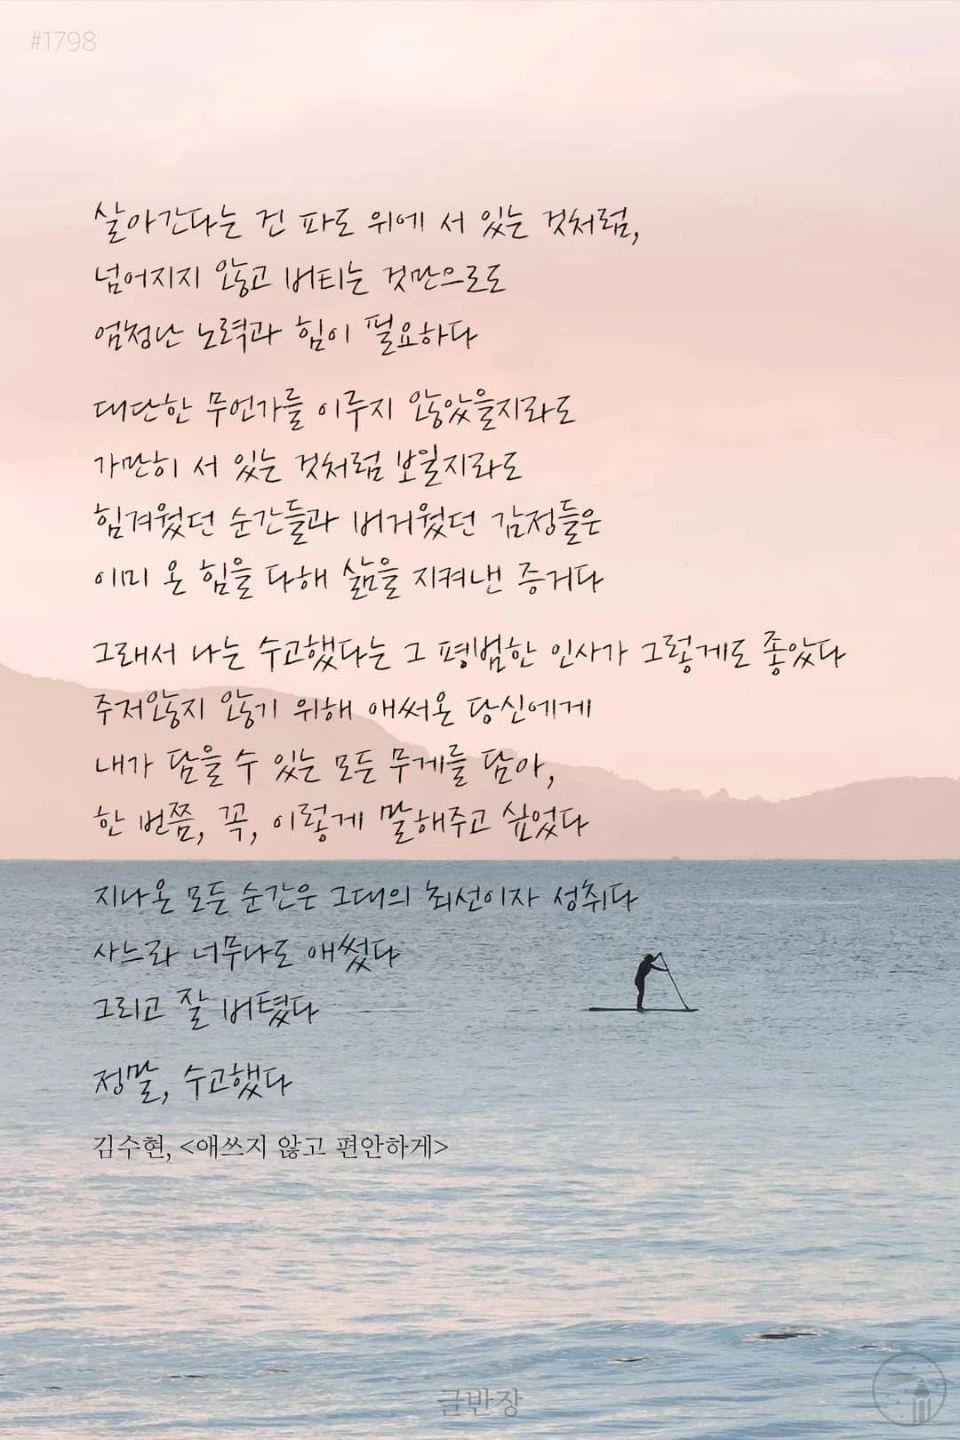 #1798
살아간다는 건 파도 위에 서 있는 것처럼,
넘어지지 않고 버티는 것만으로도
엄청난 노력과 힘이 필요하다
대단한 무언가를 이루지 않았을지라도
가만히 서 있는 것처럼 보일지라도
힘겨웠던 순간들과 버거웠던 감정들은
이미 온 힘을 다해 삶을 지켜낸 증거다
그래서 나는 수고했다는 그 평범한 인사가 그렇게도 좋았다
주저앉지 않기 위해 애써온 당신에게
내가 담을 수 있는 모든 무게를 담아,
한 번쯤, 꼭, 이렇게 말해주고 싶었다
지나온 모든 순간은 그대의 최선이자 성취다
사느라 너무나도 애썼다
그리고 잘 버텼다
정말, 수고했다
김수현, <애쓰지 않고 편안하게>
글반장